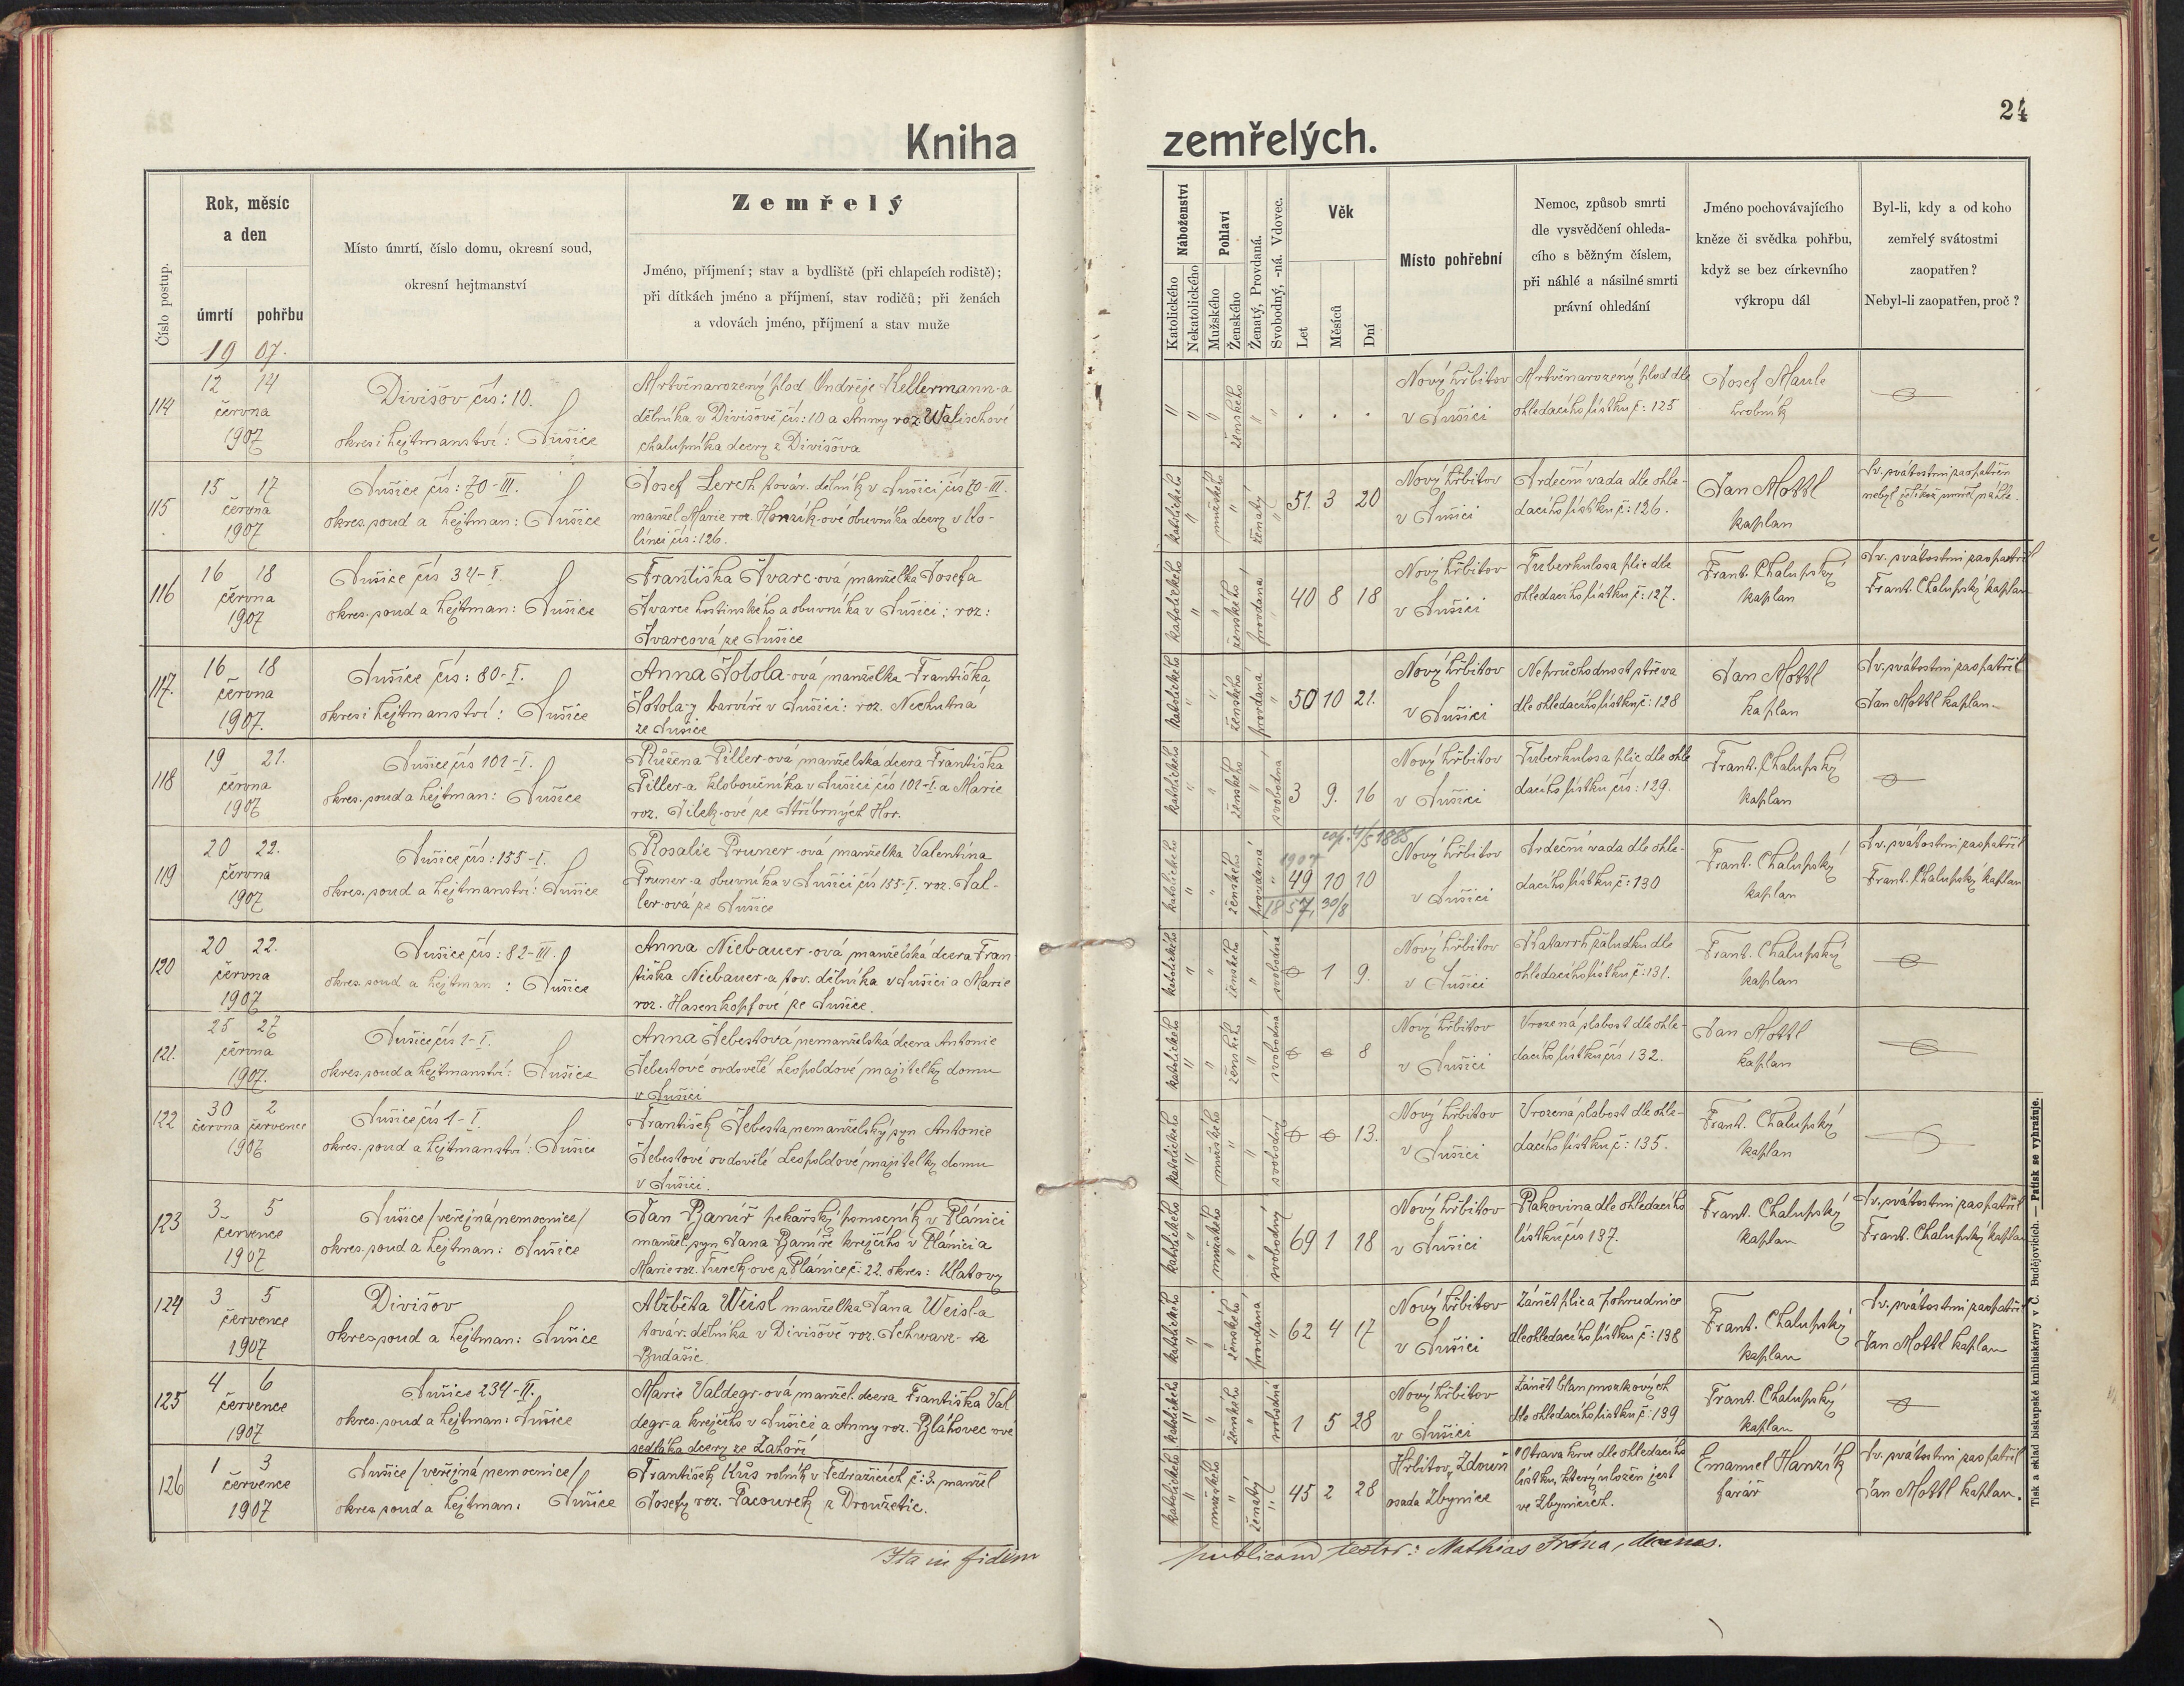 24
Kniha zemřelých.
Číslo postup.
Rok, měsíc
a den
úmrtí pohřbu
1907.
Místo úmrtí, číslo domu, okresní soud,
okresní hejtmanství
Zemřelý
Jméno, příjmení; stav a bydliště (při chlapcích rodiště);
při dítkách jméno a příjmení, stav rodičů; při ženách
a vdovách jméno, příjmení a stav muže
114
12 14
června
1907
Divišov čís: 10.
okres i hejtmanství: Sušice
Mrtvěnarozený plod Ondřeje Kellermann-a
dělníka v Divišově čís: 10 a Anny roz. Walischové
chalupníka dcery z Divišova
115
15 17
června
1907
Sušice čís: 70-III.
okres. soud a hejtman: Sušice
Josef Lerch továr. dělník v Sušici čís 70-III.
manžel Marie roz. Honzík-ové obuvníka dcery v Ko-
línci čís: 126.
116
16 18
června
1907
Sušice čís 34-I.
okres. soud a hejtman: Sušice
Františka Švarc-ová manželka Josefa
Švarce hostinského a obuvníka v Sušici; roz:
Švarcová ze Sušice
117.
16 18
června
1907.
Sušice čís: 80-I.
okres i hejtmanství: Sušice
Anna Šotola-ová manželka Františka
Šotola-y barvíře v Sušici: roz. Nechutná
ze Sušice
118
19 21.
června
1907
Sušice čís 101-I.
okres. soud a hejtman: Sušice
Růžena Piller-ová manželská dcera Františka
Piller-a kloboučníka v Sušici čís 101-I. a Marie
roz. Jílek-ové ze Stříbrných Hor.
119
20 22.
června
1907
Sušice čís: 155-I.
okres. soud a hejtmanství: Sušice
Rosalie Pruner-ová manželka Valentina
Pruner-a obuvníka v Sušici čís 155-I. roz. Sal-
ler-ová ze Sušice
120
20 22.
června
1907
Sušice čís: 82-III.
okres. soud a hejtman: Sušice
Anna Niebauer-ová manželská dcera Fran
tiška Niebauer-a tov. dělníka v Sušici a Marie
roz. Hasenkopfové ze Sušice.
121.
25 27
června
1907.
Sušice čís 1-I.
okres. soud a hejtmanství: Sušice
Anna Šebestová nemanželská dcera Antonie
Šebestové ovdovělé Leopoldové majitelky domu
v Sušici
122
30 2
června července
1907
Sušice čís 1-I.
okres. soud a hejtmanství: Sušice
František Šebesta nemanželský syn Antonie
Šebestové ovdovělé Leopoldové majitelky domu
v Sušici.
123
3 5
července
1907
Sušice /veřejná nemocnice/
okres. soud a hejtman: Sušice
Jan Baníř pekařský pomocník v Plánici
manžel. syn Jana Baníře krejčího v Plánici a
Marie roz. Turek-ové z Plánice č: 22. okres: Klatovy
124
3 5
července
1907
Divišov
okres. soud a hejtman: Sušice
Alžběta Weisl manželka Jana Weisl-a
továr. dělníka v Divišově roz. Schwarz- z
Budašic.
125
4 6
července
1907
Sušice 234-II.
okres. soud a hejtman: Sušice
Marie Valdegr-ová manžel. dcera Františka Val
degr-a krejčího v Sušici a Anny roz. Bláhovec-ové
sedláka dcery ze Záhoří
126
1 3
července
1907
Sušice /veřejná nemocnice/
okres. soud a hejtman: Sušice
František Kůs rolník v Tedražicích č: 3. manžel
Josefy roz. Pacourek z Droužetic.
Ita in fidem
Náboženství
Katolického
Nekatolického
Pohlaví
Mužského
Ženského
Ženatý, Provdaná.
Svobodný, -ná. Vdovec.
Věk
Let
Měsíců
Dní
Místo pohřební
Nemoc, způsob smrti
dle vysvědčení ohleda-
cího s běžným číslem,
při náhlé a násilné smrti
právní ohledání
Jméno pochovávajícího
kněze či svědka pohřbu,
když se bez církevního
výkropu dál
Byl-li, kdy a od koho
zemřelý svátostmi
zaopatřen?
Nebyl-li zaopatřen, proč?
ženského
Nový hřbitov
v Sušici
Mrtvěnarozený plod dle
ohledacího lístku č: 125
Josef Maule
hrobník
katolického mužského ženatý 51. 3 20
Nový hřbitov
v Sušici
Srdeční vada dle ohle-
dacího lístku č: 126.
Jan Mottl
kaplan
Sv. svátostmi zaopatřen
nebyl jelikož umřel náhle.
katolického ženského provdaná 40 8 18
Nový hřbitov
v Sušici
Tuberkulosa plic dle
ohledacího lístku č: 127.
Frant. Chalupský
kaplan
Sv. svátostmi zaopatřil
Frant. Chalupský kaplan
katolického ženského provdaná 50 10 21.
Nový hřbitov
v Sušici
Neprůchodnost střeva
dle ohledacího lístku č: 128
Jan Mottl
kaplan
Sv. svátostmi zaopatřil
Jan Mottl kaplan.
katolického ženského svobodná 3 9. 16
Nový hřbitov
v Sušici
Tuberkulosa plic dle ohle
dacího lístku čís: 129.
Frant. Chalupský
kaplan
cop. 4/5 1885
1907
katolického ženského provdaná 49 10 10
1857, 30/8
Nový hřbitov
v Sušici
Srdeční vada dle ohle-
dacího lístku č: 130
Frant. Chalupský
kaplan
Sv. svátostmi zaopatřil
Frant. Chalupský kaplan
katolického ženského svobodná 1 9.
Nový hřbitov
v Sušici
Katarrh žaludku dle
ohledacího lístku č: 131.
Frant. Chalupský
kaplan
katolického ženského svobodná 8
Nový hřbitov
v Sušici
Vrozená slabost dle ohle-
dacího lístku čís 132.
Jan Mottl
kaplan
katolického mužského svobodný 13.
Nový hřbitov
v Sušici
Vrozená slabost dle ohle-
dacího lístku č: 135.
Frant. Chalupský
kaplan
katolického mužského svobodný 69 1 18
Nový hřbitov
v Sušici
Rakovina dle ohledacího
lístku čís 137.
Frant. Chalupský
kaplan
Sv. svátostmi zaopatřil
Frant. Chalupský kaplan
katolického ženského provdaná 62 4 17
Nový hřbitov
v Sušici
Zánět plic a pohrudnice
dle ohledacího lístku č: 138
Frant. Chalupský
kaplan
Sv. svátostmi zaopatřil
Jan Mottl kaplan
katolického ženského svobodná 1 5 28
Nový hřbitov
v Sušici
Zánět blan mozkových
dle ohledacího lístku č: 139
Frant. Chalupský
kaplan
katolického mužského ženatý 45 2 28
Hřbitov „Zdouň"
osada Zbynice
Otrava krve dle ohledacího
lístku, který uložen jest
ve Zbynicích.
Emanuel Hanzík
farář
Sv. svátostmi zaopatřil
Jan Mottl kaplan.
publicam testor: Mathias Frána, decanus.
Tisk a sklad biskupské knihtiskárny v Č. Budějovicích. — Patisk se vyhražuje.